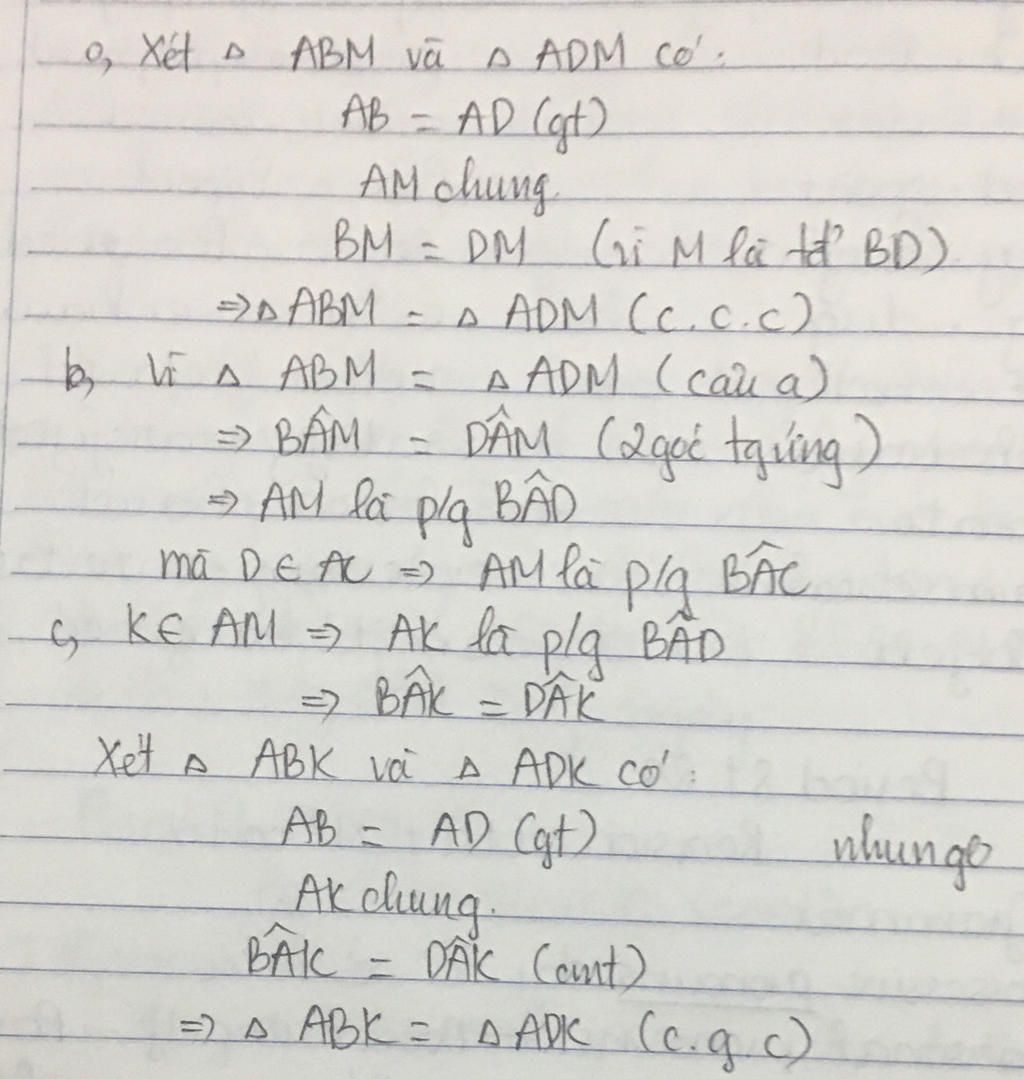 a, Xét △ ABM và △ ADM có:
AB = AD (gt)
AM chung
BM = DM (vì M là tđ BD)
⇒ △ ABM = △ ADM (c.c.c)
b, Vì △ ABM = △ ADM (câu a)
⇒ BÂM = DÂM (2 góc tg ứng)
⇒ AM là p/g BÂD
mà D ∈ AC ⇒ AM là p/g BÂC
c, K ∈ AM ⇒ AK là p/g BÂD
⇒ BÂK = DÂK
Xét △ ABK và △ ADK có:
AB = AD (gt) nhungo
AK chung.
BÂK = DÂK (cmt)
⇒ △ ABK = △ ADK (c.g.c)